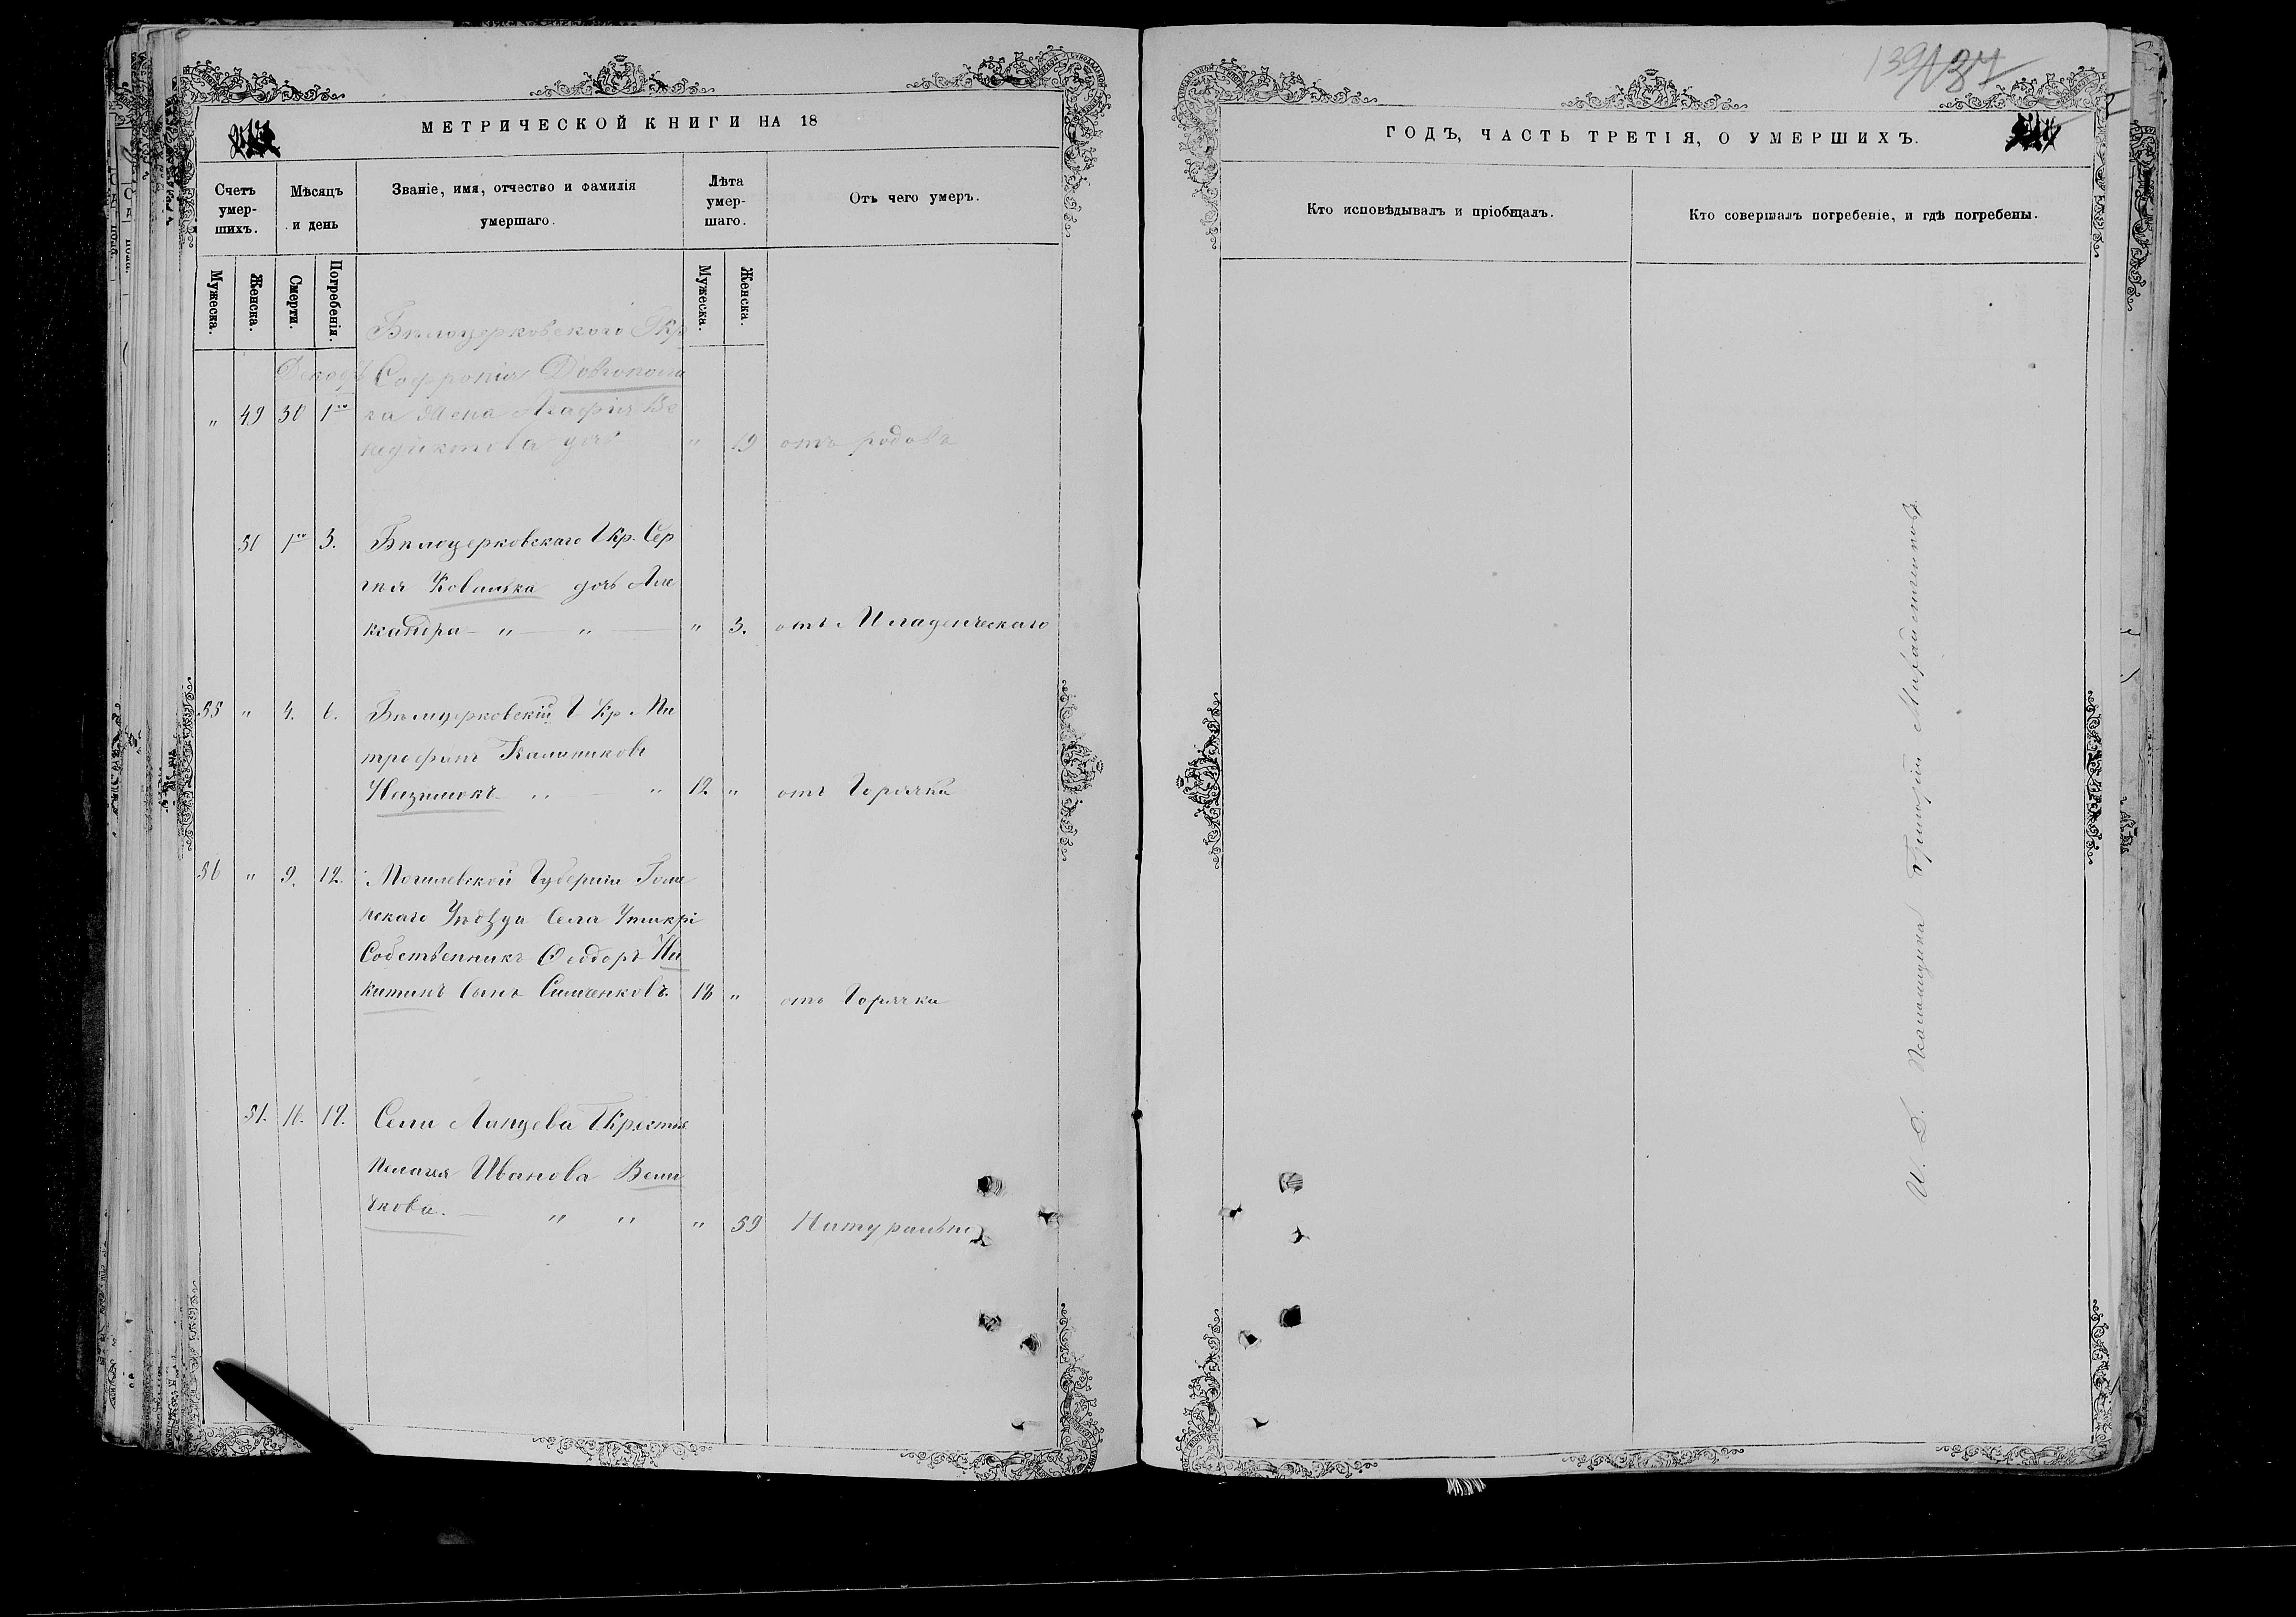 МЕТРИЧЕСКОЙ КНИГИ НА 18
Счетъ умер-шихъ.
Мѣсяцъ и день
Званіе, имя, отчество и фамилія умершаго.
Лѣта умер-шаго.
Отъ чего умеръ.
Мужеска.
Женска.
Смерти.
Погребенія.
Мужеска.
Женска.
Бѣлоцерковскаго Гкр
Софронія
" 49 30 1го га жена Агафія Ве
недиктова дочь " 19 отъ родовъ
50 1го 3. Бѣлоцерковскаго Гкр. Сер
гѣя Ковалька дочь Але
ксандра " " " 3. отъ Младенческаго
55 " 4. 6. Бѣлоцерковскій Г Кр Ми
трофанъ Калиниковъ
" " 12 " отъ Горячки
56 " 9. 12. Могилевской Губерніи Гоме
льскаго Уѣзда Села
Собственникъ Феодоръ Ни
китинъ Сынъ Симченковъ. 18 " отъ Горячки
51. 16. 19. Села Липцева Г.Крестья
Пелагея Иванова Вели
чкова. " " " 59 Натурально
139
137
ГОДЪ, ЧАСТЬ ТРЕТІЯ, О УМЕРШИХЪ.
Кто исповѣдывалъ и пріобщалъ.
Кто совершалъ погребеніе, и гдѣ погребены.
И. Д. Псаломщика Григорій